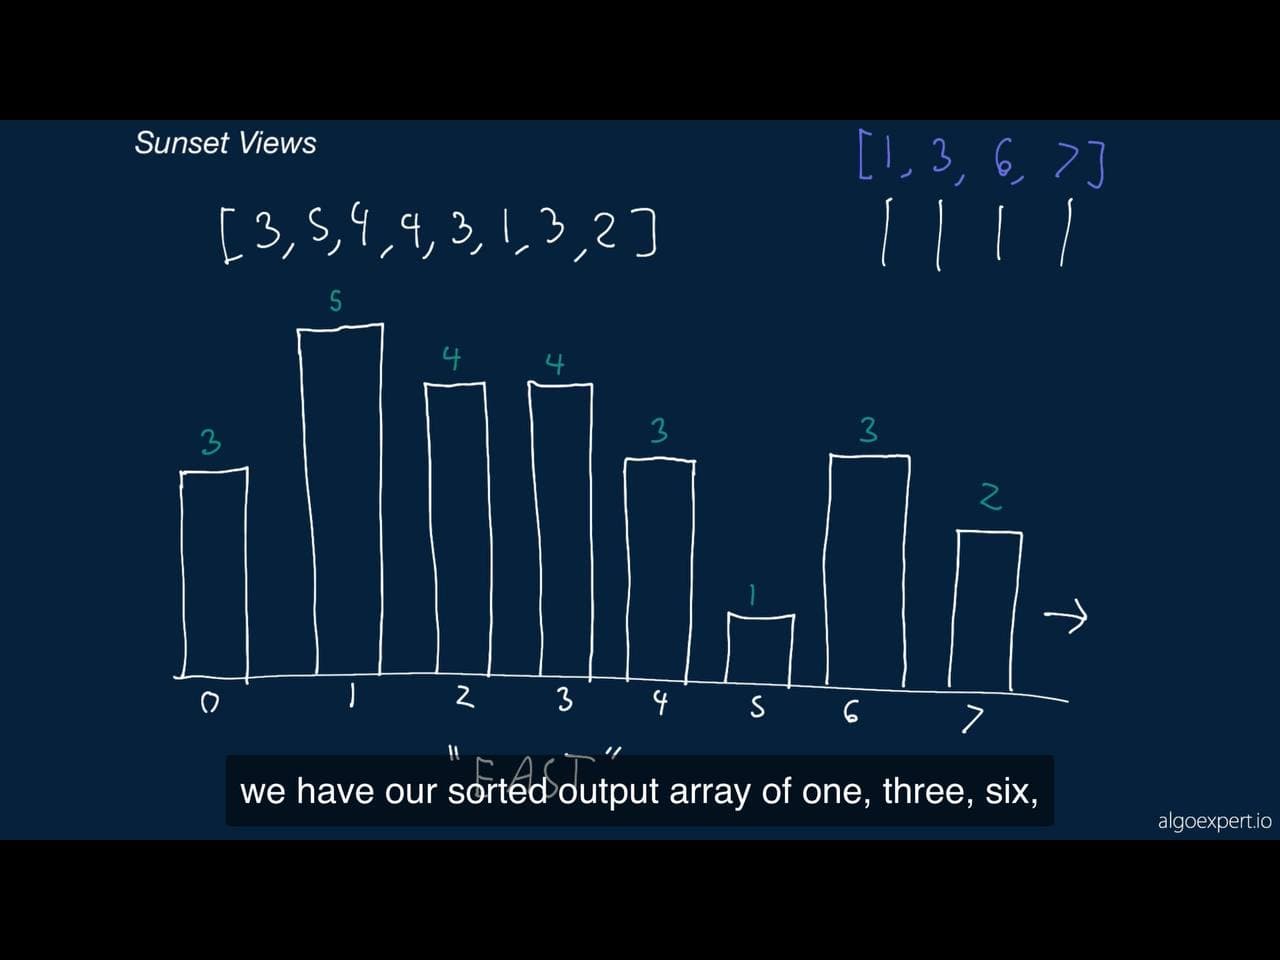 Sunset Views
[1, 3, 6, 7]
[3, 5, 4, 4, 3, 1, 3, 2]
5
4 4
3 3 3
2
1
0 1 2 3 4 5 6 7
"EAST"
we have our sorted output array of one, three, six,
algoexpert.io